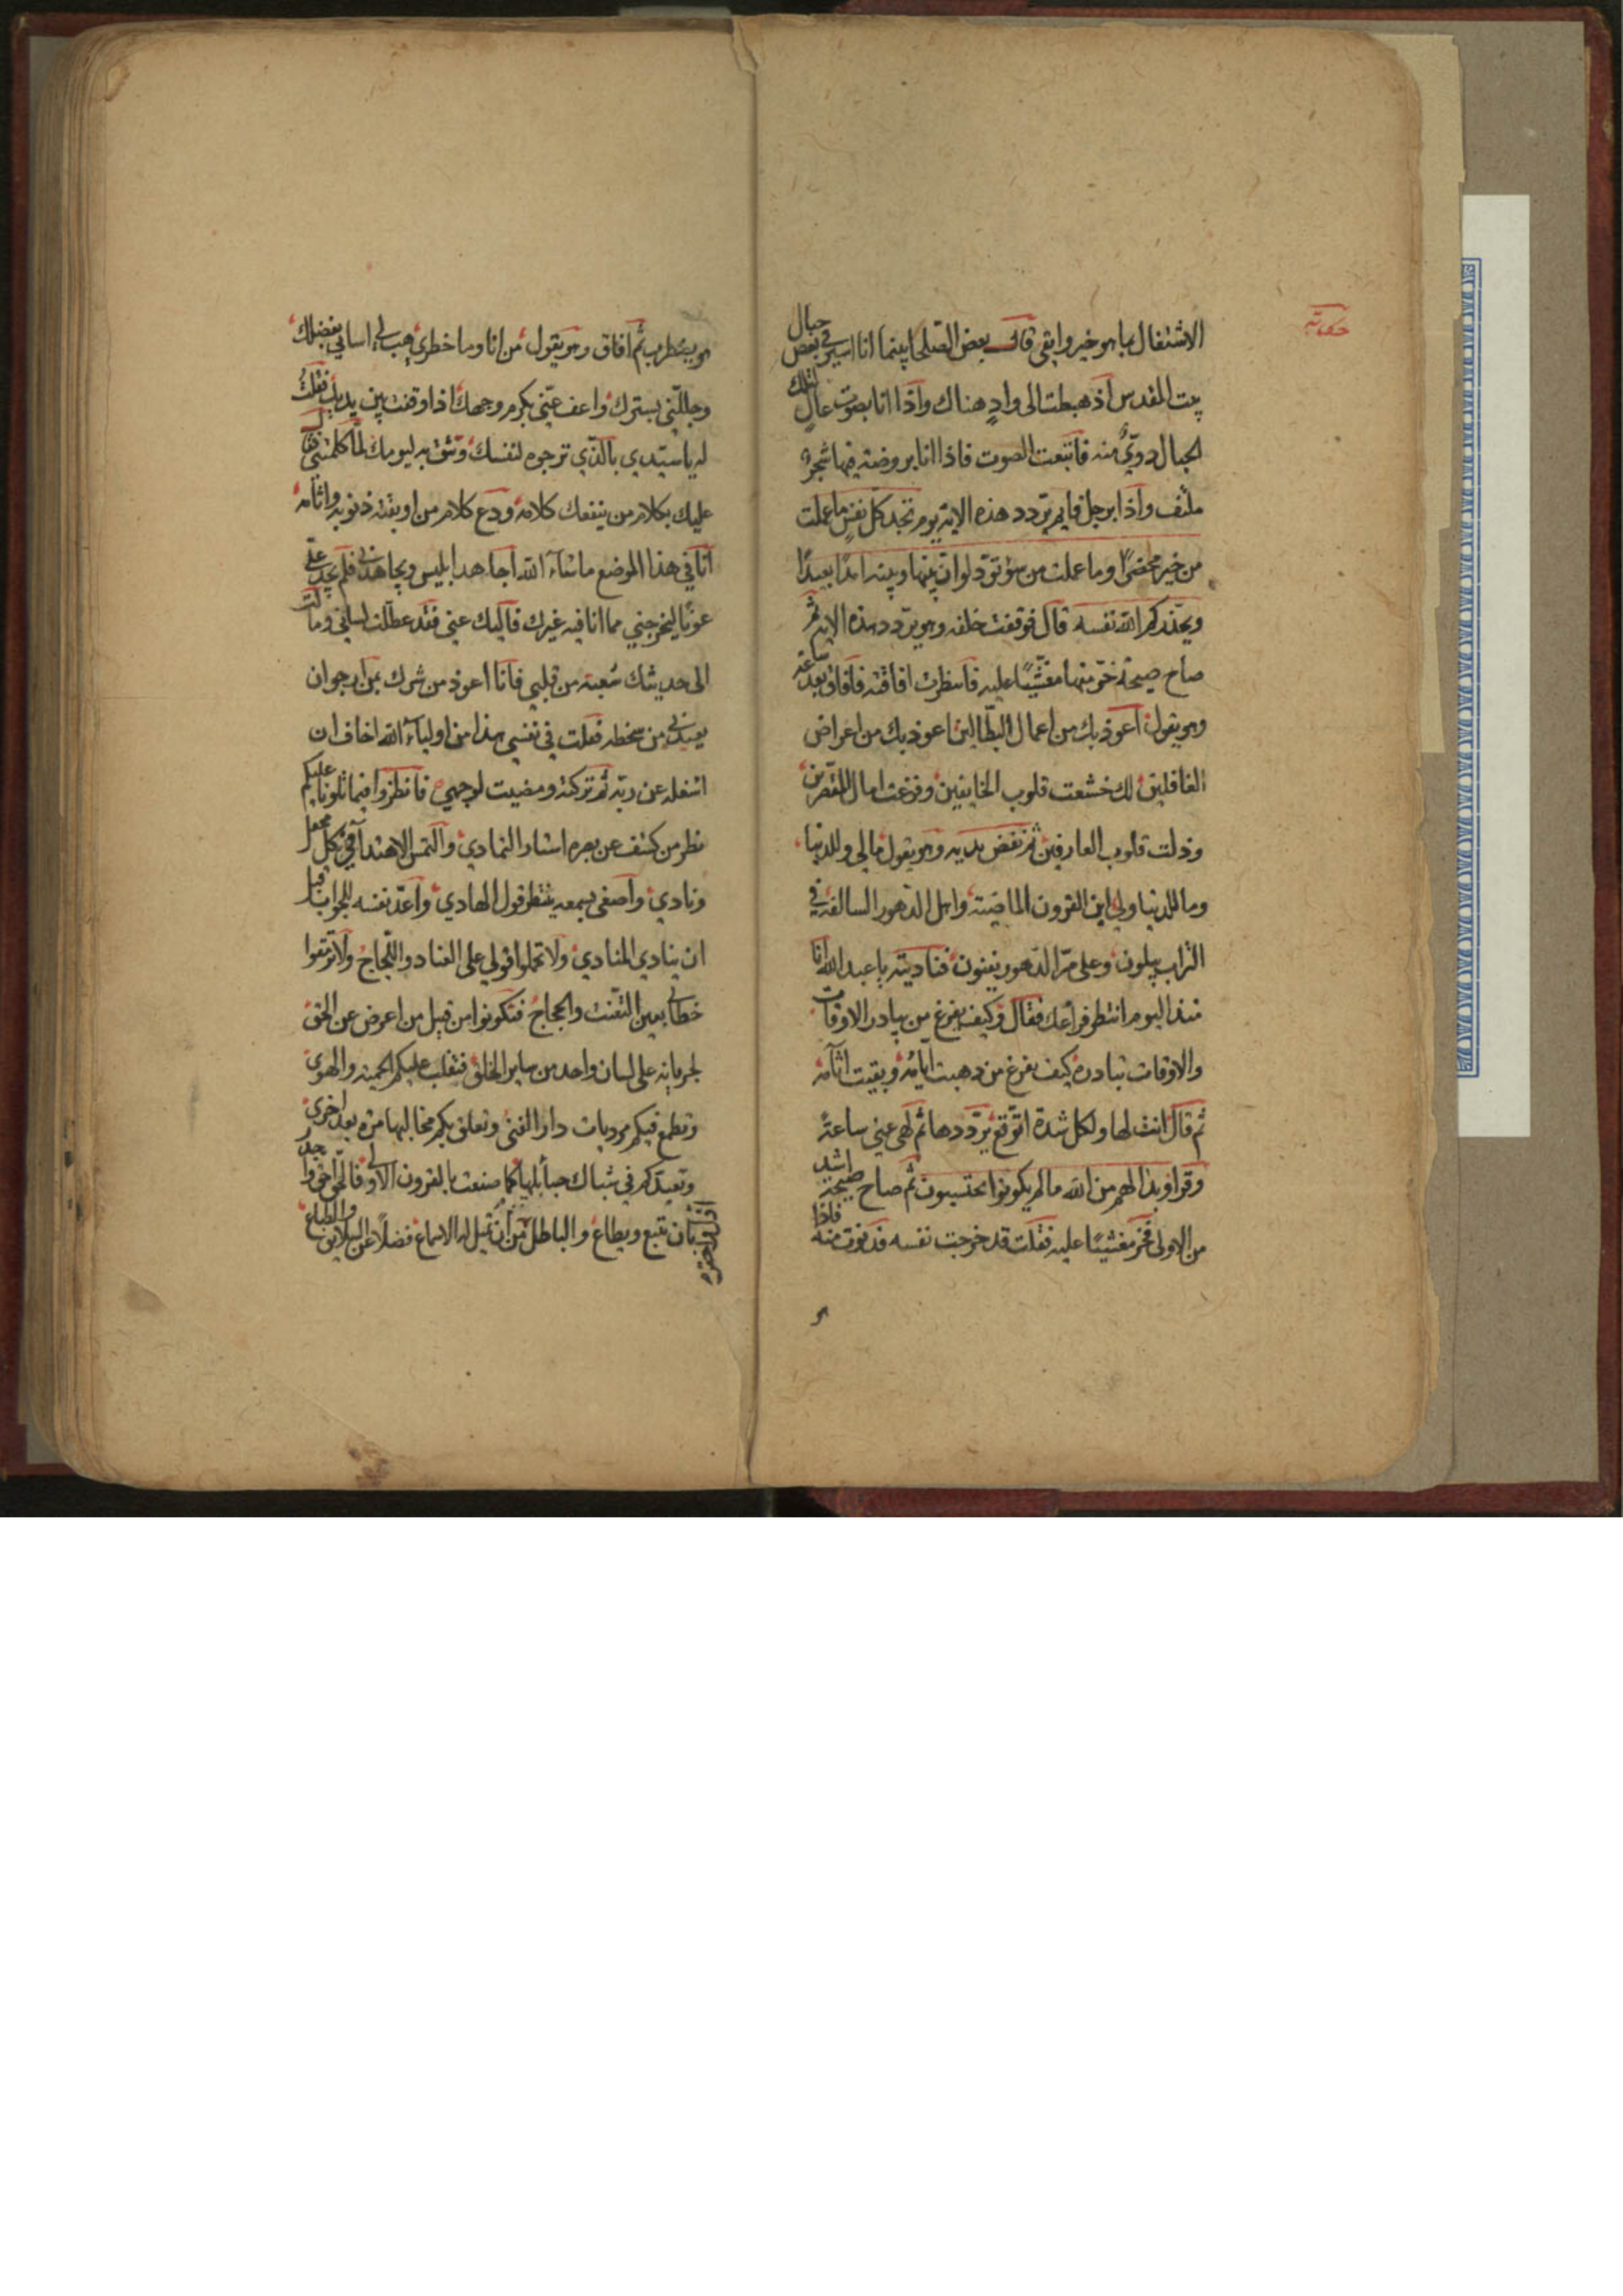 حكاية
الاشتغال بما هو خير وابقى قال بعض الصلحا بينما انا اسير في بعض جبال
بيت المقدس اذ هبطت الى واد هناك واذا انا بصوت عال لتلك
الجبال دويّ منه فاتبعت الصوت فاذا انا بروضة فيها شجر
ملتف واذا برجل قايم يردد هذه الاية يوم تجد كل نفس ما عملت
من خير محضرًا وما عملت من سوء تود لو ان بينها وبينه امدًا بعيدًا
ويحذركم الله نفسه قال فوقفت خلفه وهو يردد هذه الاية ثم
صاح صيحة خرّ منها مغشيًا عليه فانتظرت افاقته فافاق بعد ساعة
وهو يقول اعوذ بك من اعمال البطالين اعوذ بك من اعراض
الغافلين لك خشعت قلوب الخايفين وفزعت امال المقصرين
وذلت قلوب العارفين ثم نفض يديه وهو يقول مالي وللدنيا
وما للدنيا ولي اين القرون الماضية واهل الدهور السالفة في
التراب يبلون وعلى مرّ الدهور يفنون فناديته يا عبد الله انا
منذ اليوم انتظر فراغك فقال وكيف يفرغ من يبادر الاوقات
والاوقات تبادره كيف يفرغ من ذهبت ايامه وبقيت اثامه
ثم قال انت لها ولكل شدة اتوقع يرددها ثم لهى عني ساعة
وقرا وبدا لهم من الله مالم يكونوا يحتسبون ثم صاح صيحة اشد
من الاولى فخر مغشيًا عليه فقلت قد خرجت نفسه فدنوت منه فاذا
هو
هو يضطرب ثم افاق وهو يقول من انا وما خطري هب لي اساتي بفضلك
وجللني بسترك واعف عني بكرم وجهك اذا وقفت بين يديك فقلت
له يا سيدي بالذي ترجوه لنفسك وتثق به ليومك لما كلمتني فقال
عليك بكلام من ينفعك كلامه ودع كلام من اوبقته ذنوبه واثامه
انا في هذا الموضع ما شاء الله اجاهد ابليس ويجاهدني فلم يجد عليّ
عونًا ليخرجني مما انا فيه غيرك فاليك عني فقد عطلت لساني ومالت
الى حديثك شعبة من قلبي فانا اعوذ من شرك بمن ارجو ان
يعيذني من سخطه فقلت في نفسي هذا من اولياء الله اخاف ان
اشغله عن ربه ثم تركته ومضيت لوجهي فانظروا فيما تلوناه عليكم
نظر من كشف عن بصره استار التمادي والتمس الاهتدآ في كل محفل
ونادي واصغى بسمعه ينتظر قول الهادي واعدّ نفسه للجواب قبل
ان ينادي المنادي ولا تحملوا قولي على العناد واللجاج ولا ترمقوا
خطابي بعين التعنت والحجاج فتكونوا من قبيل من اعرض عن الحق
لجريانه على لسان واحد من ساير الخلق فتغلب عليكم الحمية والهوى
وتطمع فيكم مرديات دار الفنى وتعلق بكم مخالبها مرة بعد اخرى
وتصيدكم في شباك حبائلها كما صنعت بالقرون الاولى فالحق احق واجدر
بان يتبع ويطاع والباطل من ان تميل له الاسماع فضلًا عن والطباع